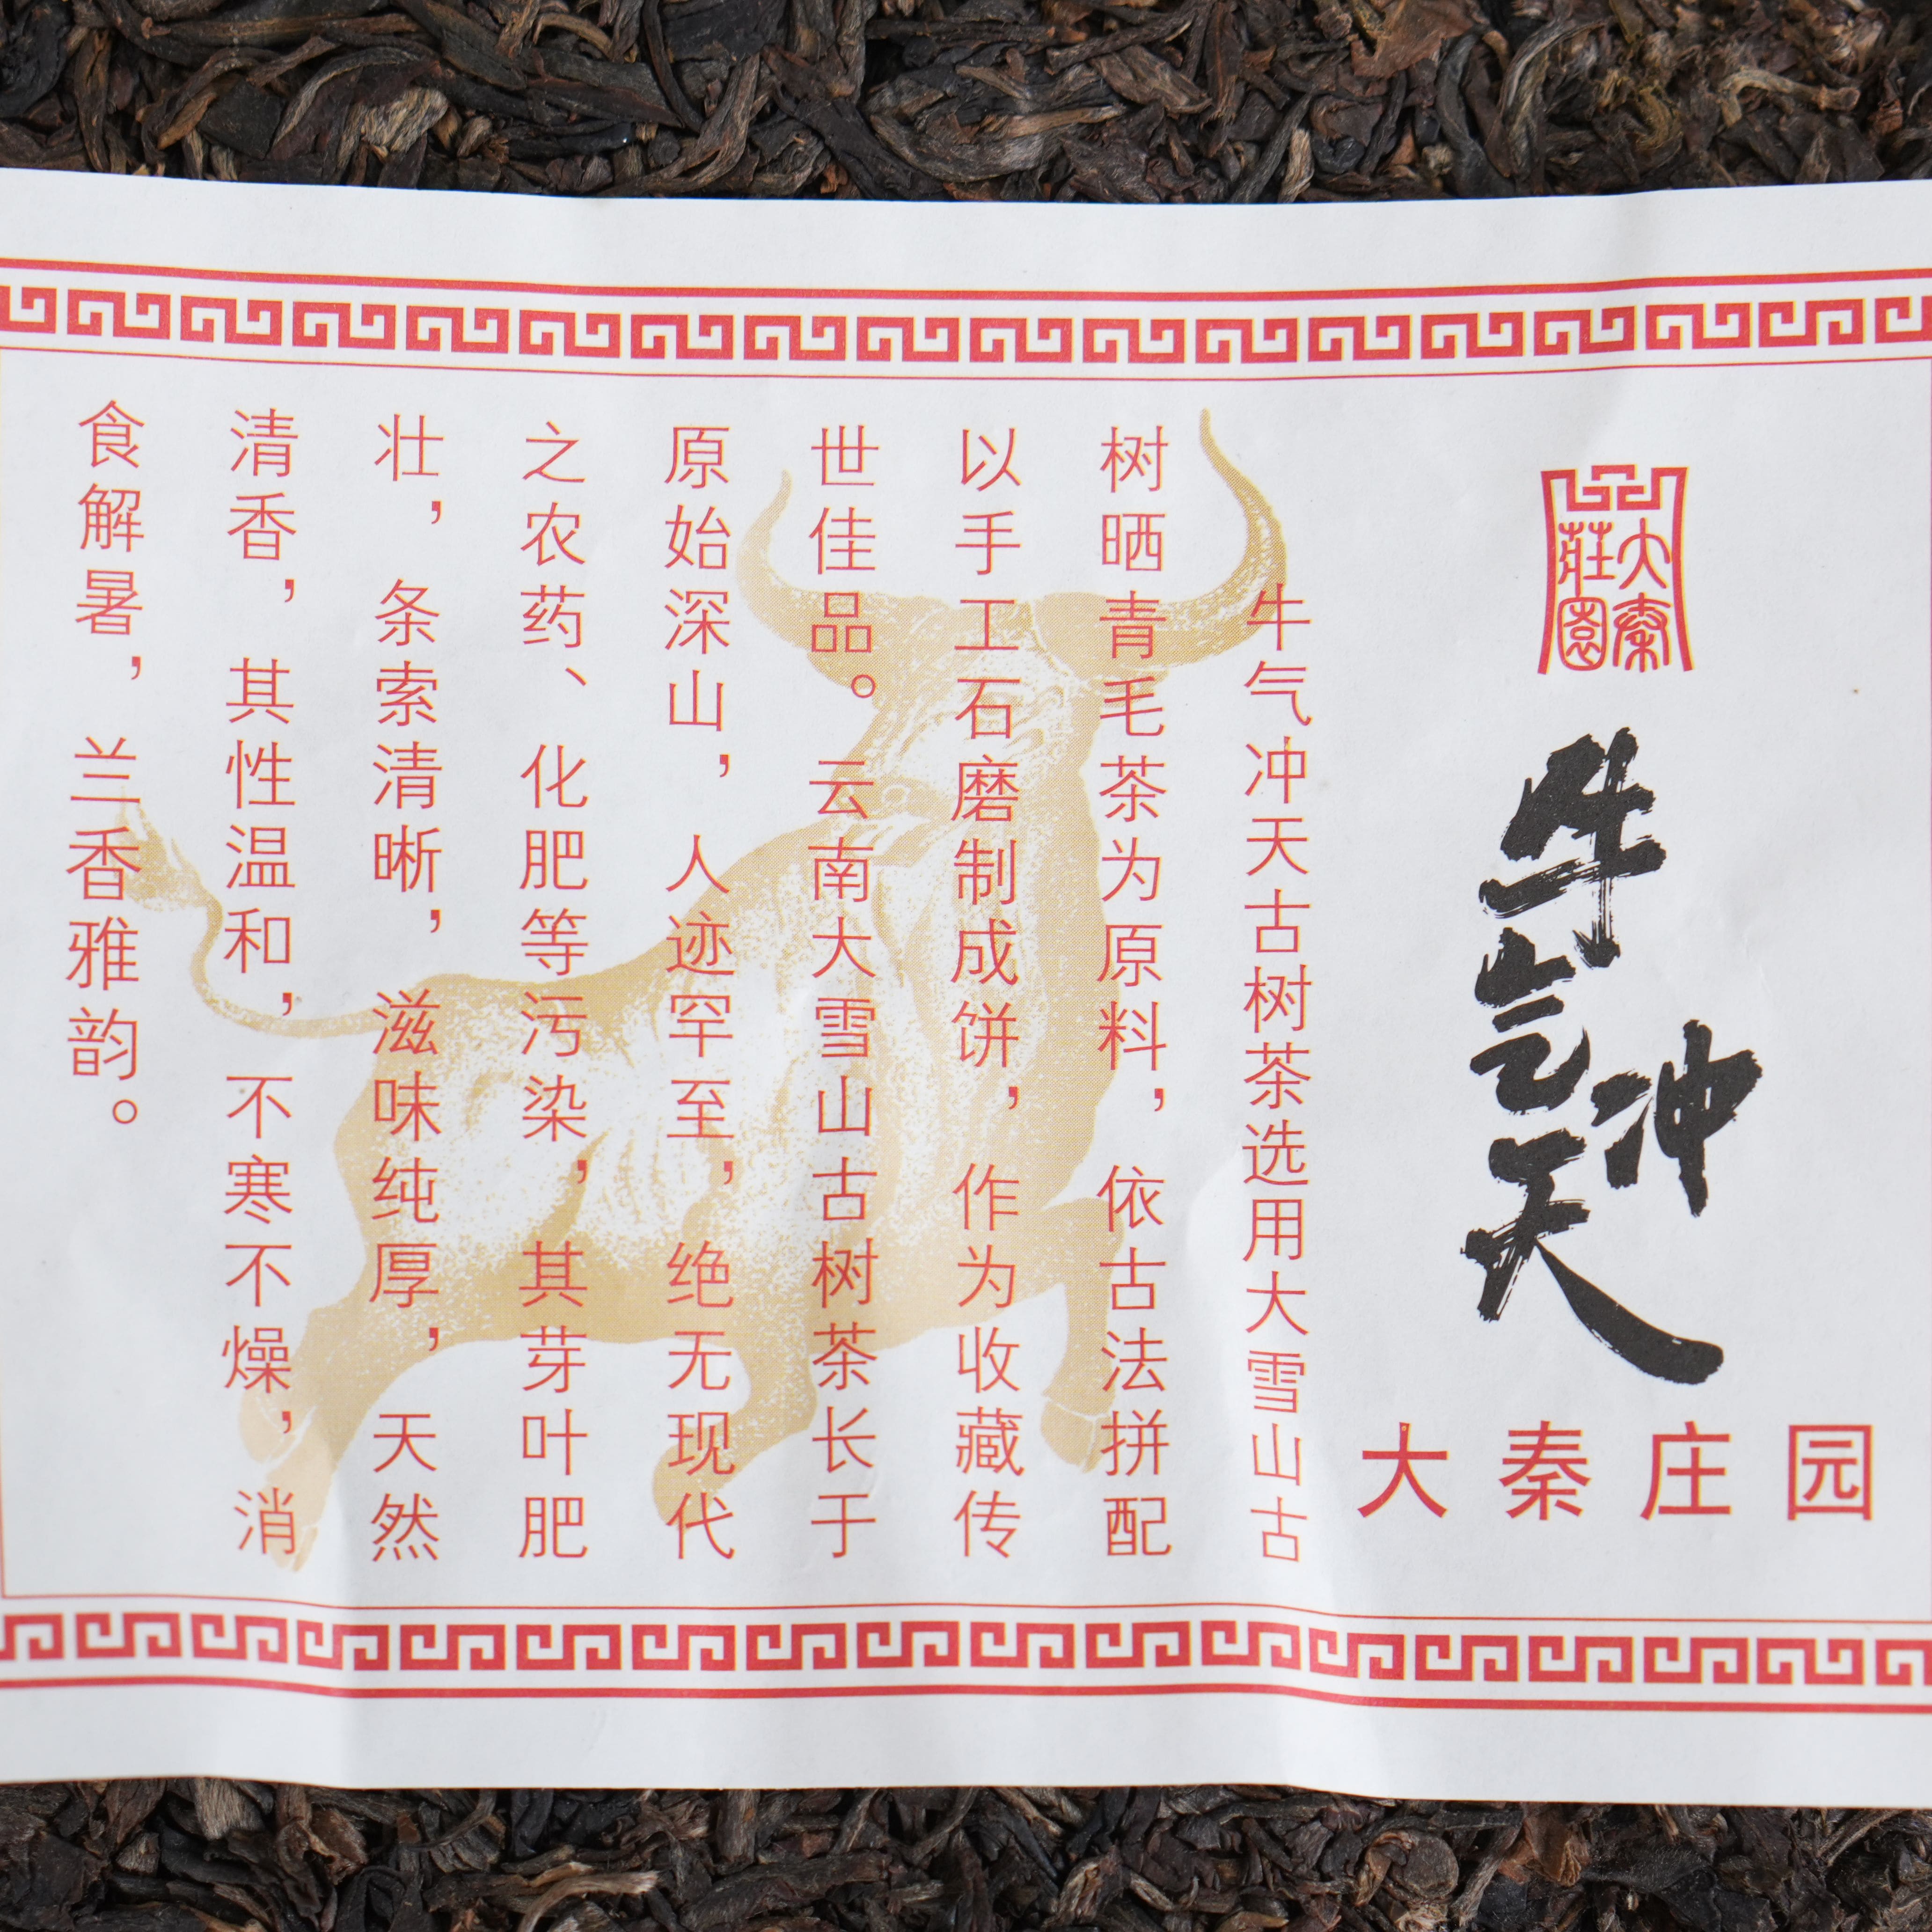 大秦
莊園
牛气
冲天
大秦庄园
牛气冲天古树茶选用大雪山古
树晒青毛茶为原料，依古法拼配
以手工石磨制成饼，作为收藏传
世佳品。云南大雪山古树茶长于
原始深山，人迹罕至，绝无现代
之农药、化肥等污染，其芽叶肥
壮，条索清晰，滋味纯厚，天然
清香，其性温和，不寒不燥，消
食解暑，兰香雅韵。